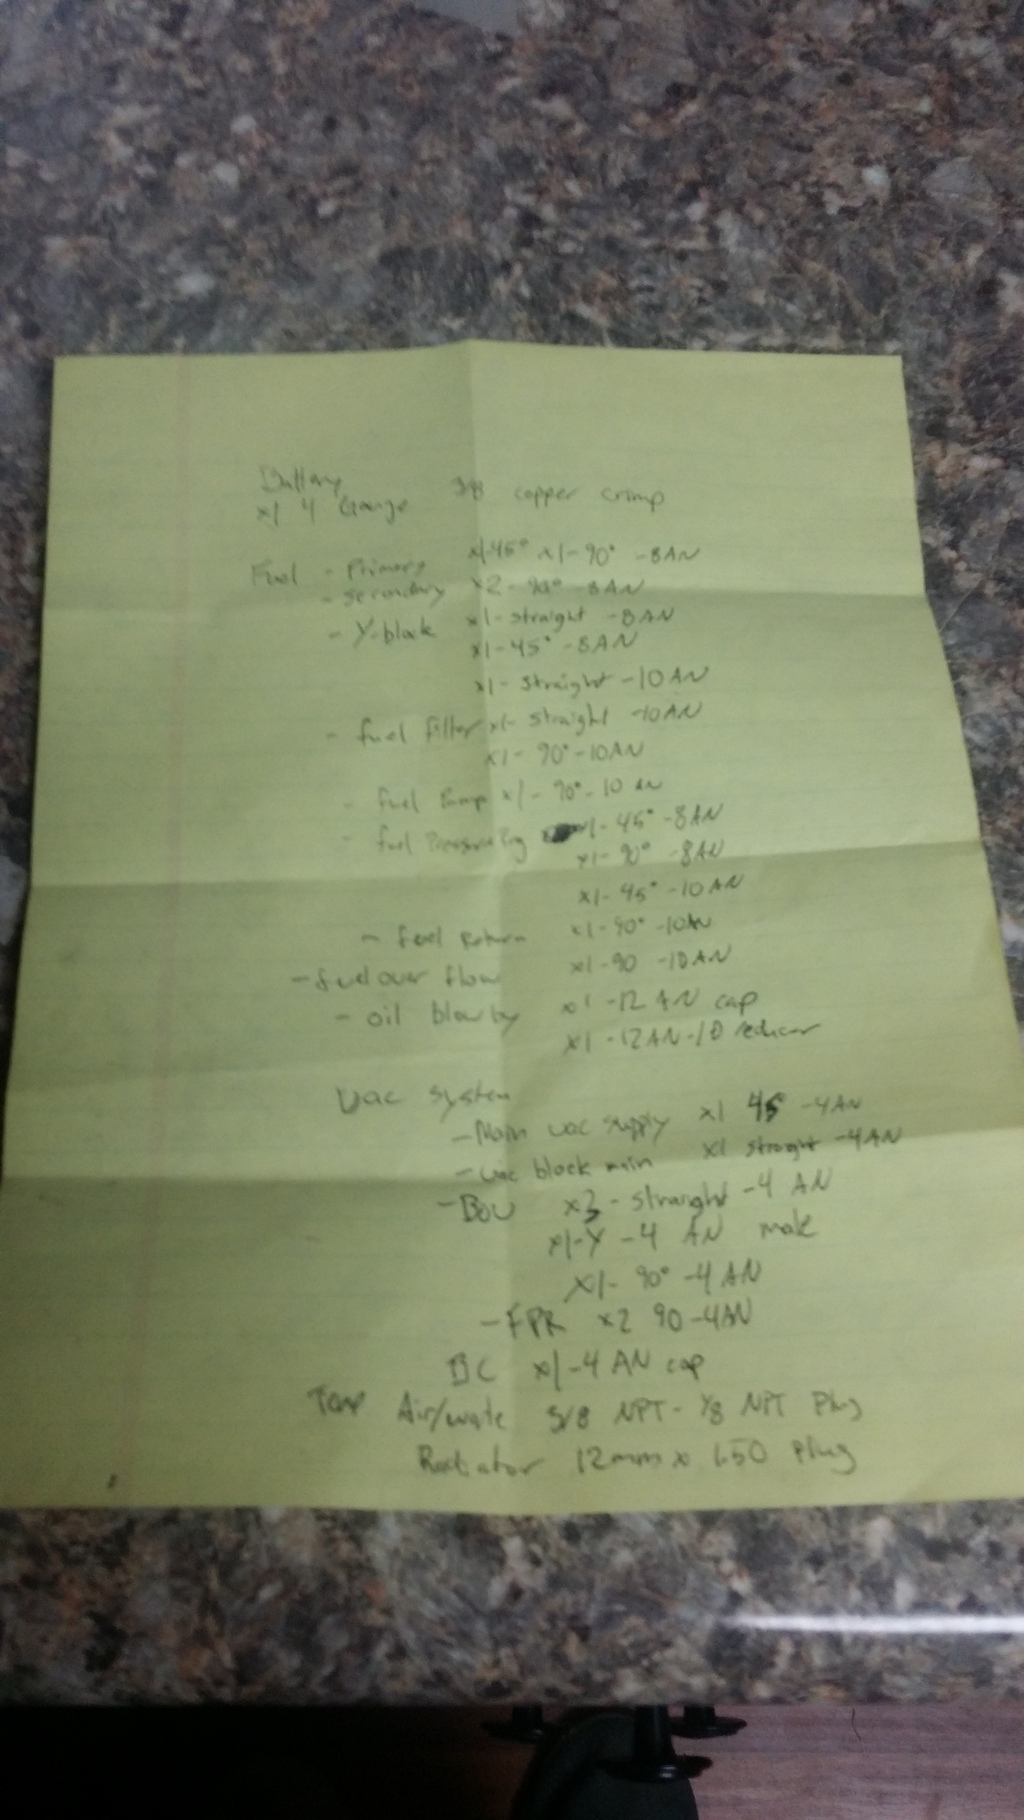 Battery
x1 4 Gauge 3/8 copper crimp
Fuel - Primary x1-45° x1-90° -8AN
- secondary x2-90° -8AN
- Y-block x1-straight -8AN
x1-45° -8AN
x1-straight -10AN
- fuel filter x1-straight -10AN
x1-90° -10AN
- fuel Pump x1-90° -10 AN
- fuel Pressure Reg x1-45° -8AN
x1-90° -8AN
x1-45° -10AN
- fuel Return x1-90° -10AN
- fuel over flow x1-90 -10AN
- oil blow by x1 -12 AN cap
x1 -12AN-10 reducer
Vac system
- Main vac supply x1 45° -4AN
- vac block main x1 straight -4AN
- BOV x3-straight -4 AN
x1-Y -4 AN male
x1-90° -4 AN
- FPR x2 90 -4AN
BC x1-4 AN cap
Temp Air/water 3/8 NPT - 1/8 NPT Plug
Radiator 12mm x 1.50 Plug